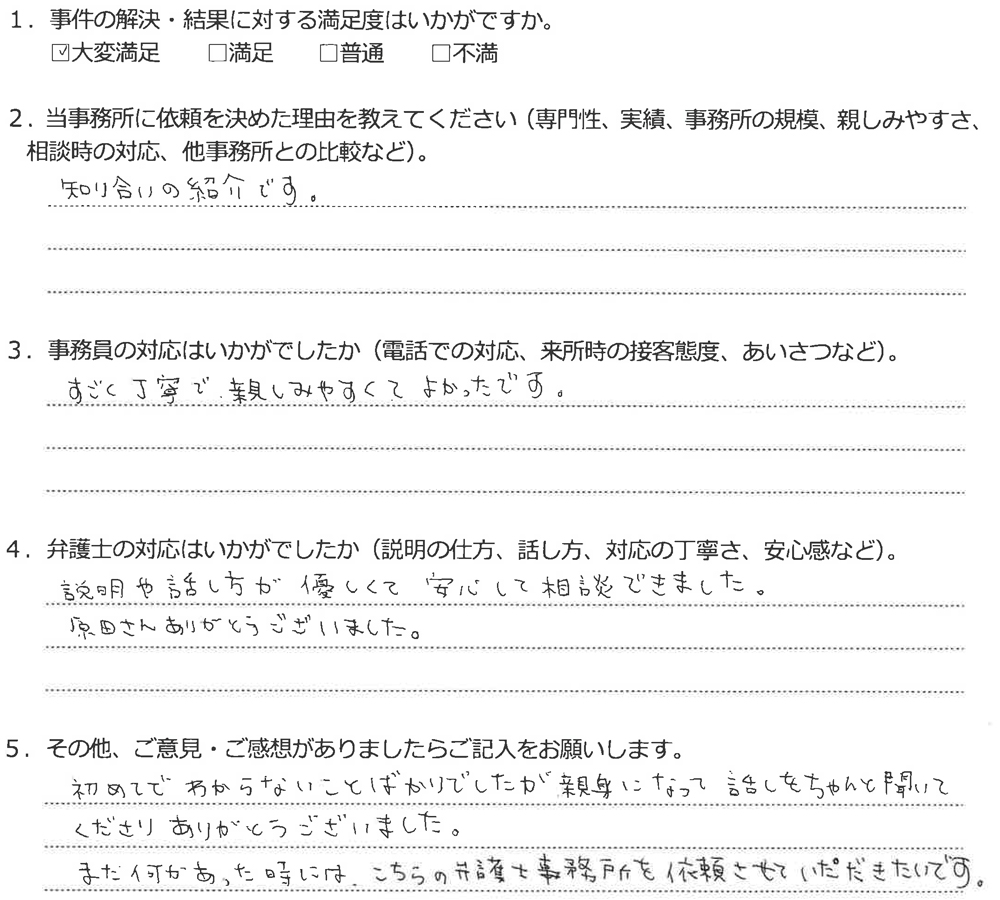 1. 事件の解決・結果に対する満足度はいかがですか。
☑大変満足 □満足 □普通 □不満
2. 当事務所に依頼を決めた理由を教えてください（専門性、実績、事務所の規模、親しみやすさ、
相談時の対応、他事務所との比較など）。
知り合いの紹介です。
3. 事務員の対応はいかがでしたか（電話での対応、来所時の接客態度、あいさつなど）。
すごく丁寧で、親しみやすくてよかったです。
4. 弁護士の対応はいかがでしたか（説明の仕方、話し方、対応の丁寧さ、安心感など）。
説明や話し方が優しくて安心して相談できました。
原田さんありがとうございました。
5. その他、ご意見・ご感想がありましたらご記入をお願いします。
初めてでわからないことばかりでしたが親身になって話しをちゃんと聞いて
くださりありがとうございました。
また何かあった時には、こちらの弁護士事務所を依頼させていただきたいです。